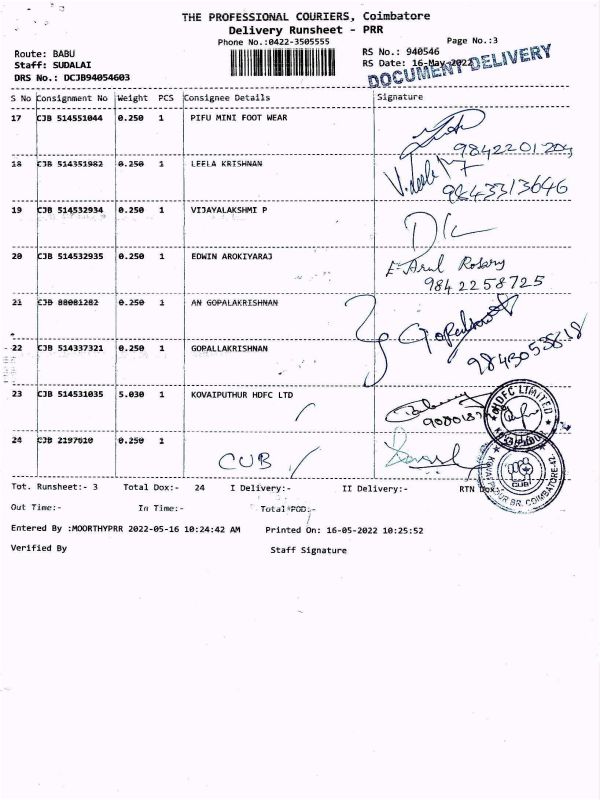 THE PROFESSIONAL COURIERS, Coimbatore
Delivery Runsheet - PRR
Phone No.:0422-3505555
Page No.:3
Route: BABU
RS No.: 940546
Staff: SUDALAI
RS Date: 16-May-2022
DRS No.: DCJB94054603
DOCUMENT DELIVERY
S No Consignment No Weight PCS Consignee Details Signature
17 CJB 514551044 0.250 1 PIFU MINI FOOT WEAR
9842201204
18 CJB 514351982 0.250 1 LEELA KRISHNAN
9843313646
19 CJB 514532934 0.250 1 VIJAYALAKSHMI P
20 CJB 514532935 0.250 1 EDWIN AROKIYARAJ
E. Arul Rosary
9842258725
21 CJB 88081282 0.250 1 AN GOPALAKRISHNAN
22 CJB 514337321 0.250 1 GOPALLAKRISHNAN
9843053818
23 CJB 514531035 5.030 1 KOVAIPUTHUR HDFC LTD
HDFC LIMITED
24 CJB 2197610 0.250 1
CUB
CUB
Tot. Runsheet:- 3 Total Dox:- 24 I Delivery:- II Delivery:- RTN Dox:-
Out Time:- In Time:- Total POD:-
Entered By :MOORTHYPRR 2022-05-16 10:24:42 AM Printed On: 16-05-2022 10:25:52
Verified By Staff Signature